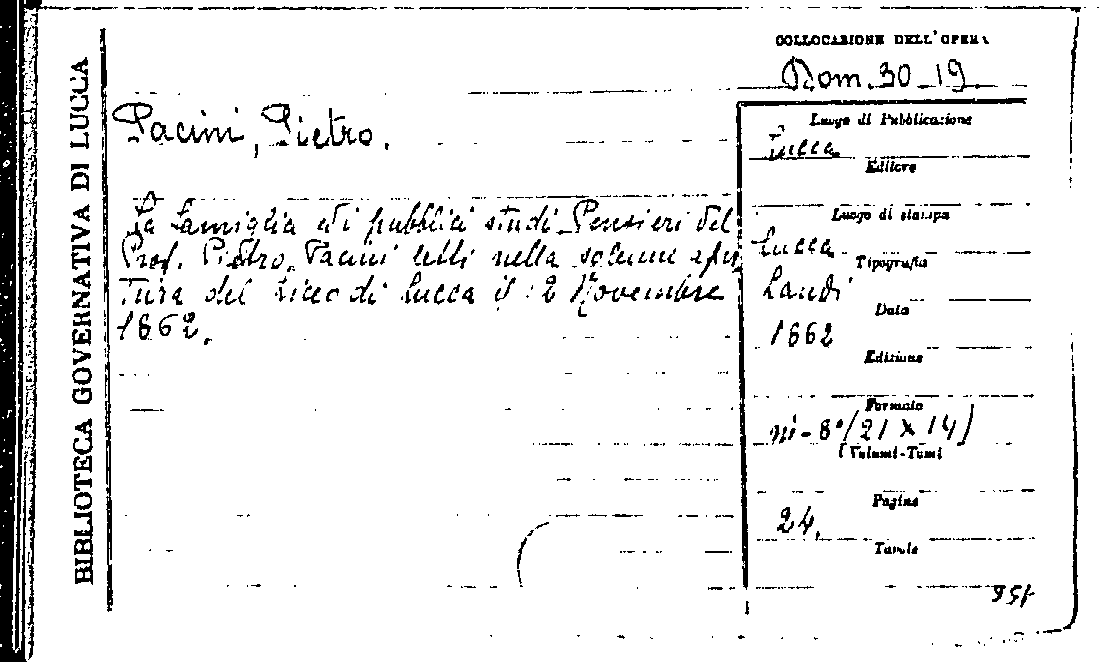 BIBLIOTECA GOVERNATIVA DI LUCCA
COLLOCAZIONE DELL'OPERA
Rom. 30 19
Pacini, Pietro.
La famiglia ed i pubblici studi. Pensieri del
Prof. Pietro Pacini letti nella solenne aper
tura del Liceo di Lucca il 12 Novembre
1862.
Luogo di Pubblicazione
Lucca
Editore
Luogo di stampa
Lucca
Tipografia
Landi
Data
1862
Edizione
Formato
in-8° (21 x 14)
(Volumi-Tomi
Pagine
24.
Tavole